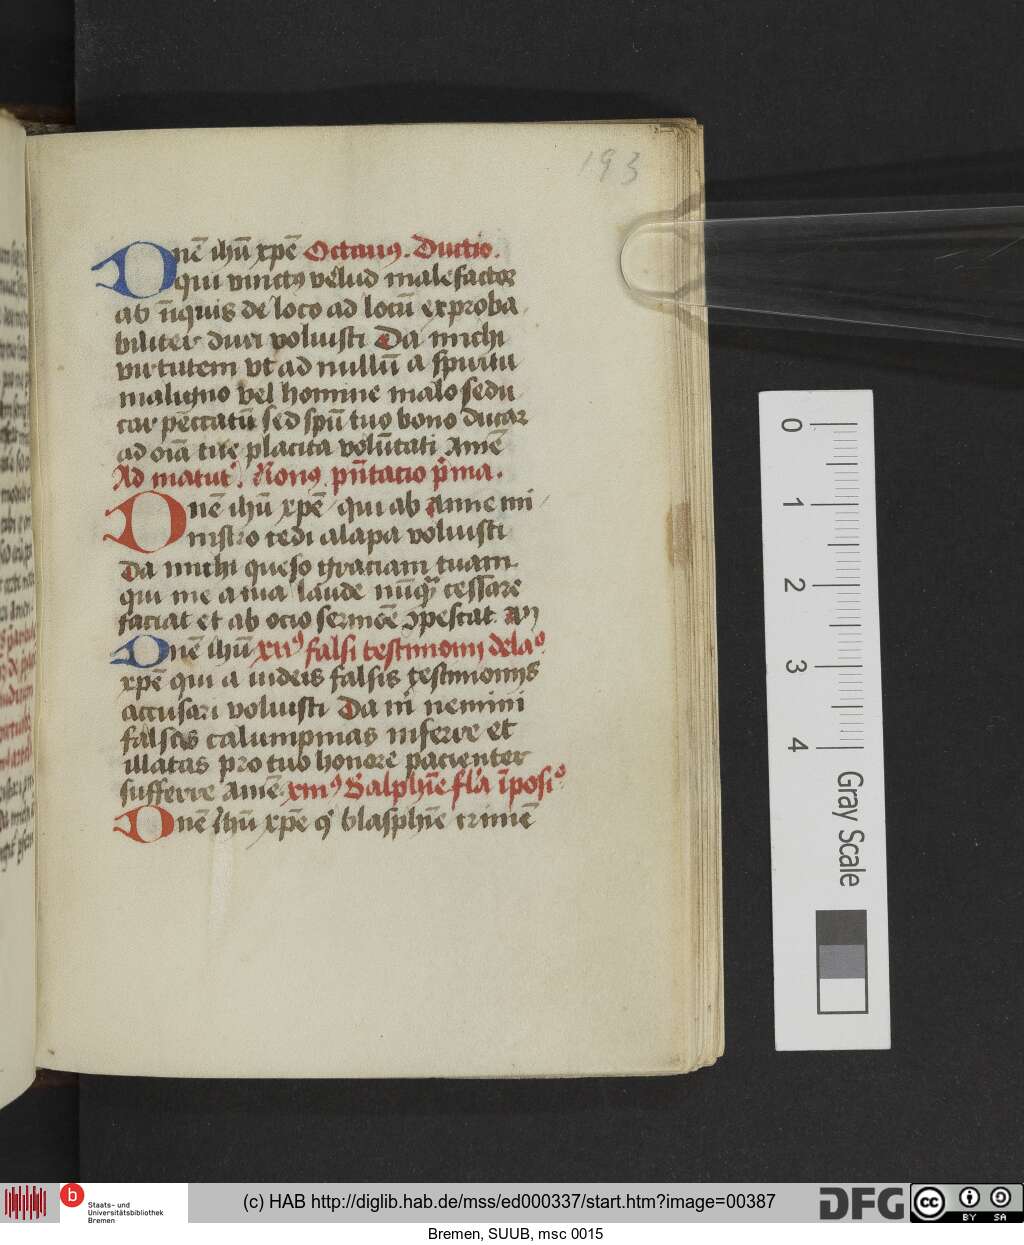 193
Dnē ihū xpē Octauus. Ductio.
qui vinctꝰ velud malefactor
ab iniquis de loco ad locū exproba
biliter duci voluisti Da michi
virtutem vt ad nullū a spiritu
maligno vel homine malo sedu
car peccatū sed spū tuo bono ducar
ad oīa tue placita volūtati Amē
Ad matut̄. Nonꝰ. pn̄tacio p̄ma.
Dnē ihū xpē qui ab Anne mi
nistro cedi alapa voluisti
Da michi queso graciam tuam
qui me a tua laude nūqꝫ cessare
faciat et ab ocio sermōe ↄpescat. am
Dnē ihū xiiꝰ falsi testimonij dela°
xpē qui a iudeis falsis testimonijs
accusari voluisti Da m̄ nemini
falsas calumpnias inferre et
illatas pro tuo honore pacienter
sufferre Amē. xiiiꝰ Balsphēie fl̄a īposi°
Dnē ihū xpē qͥ blasphēie crimē
0
1
2
3
4
Gray Scale
b
Staats- und
Universitätsbibliothek
Bremen
(c) HAB http://diglib.hab.de/mss/ed000337/start.htm?image=00387
DFG
cc
BY SA
Bremen, SUUB, msc 0015